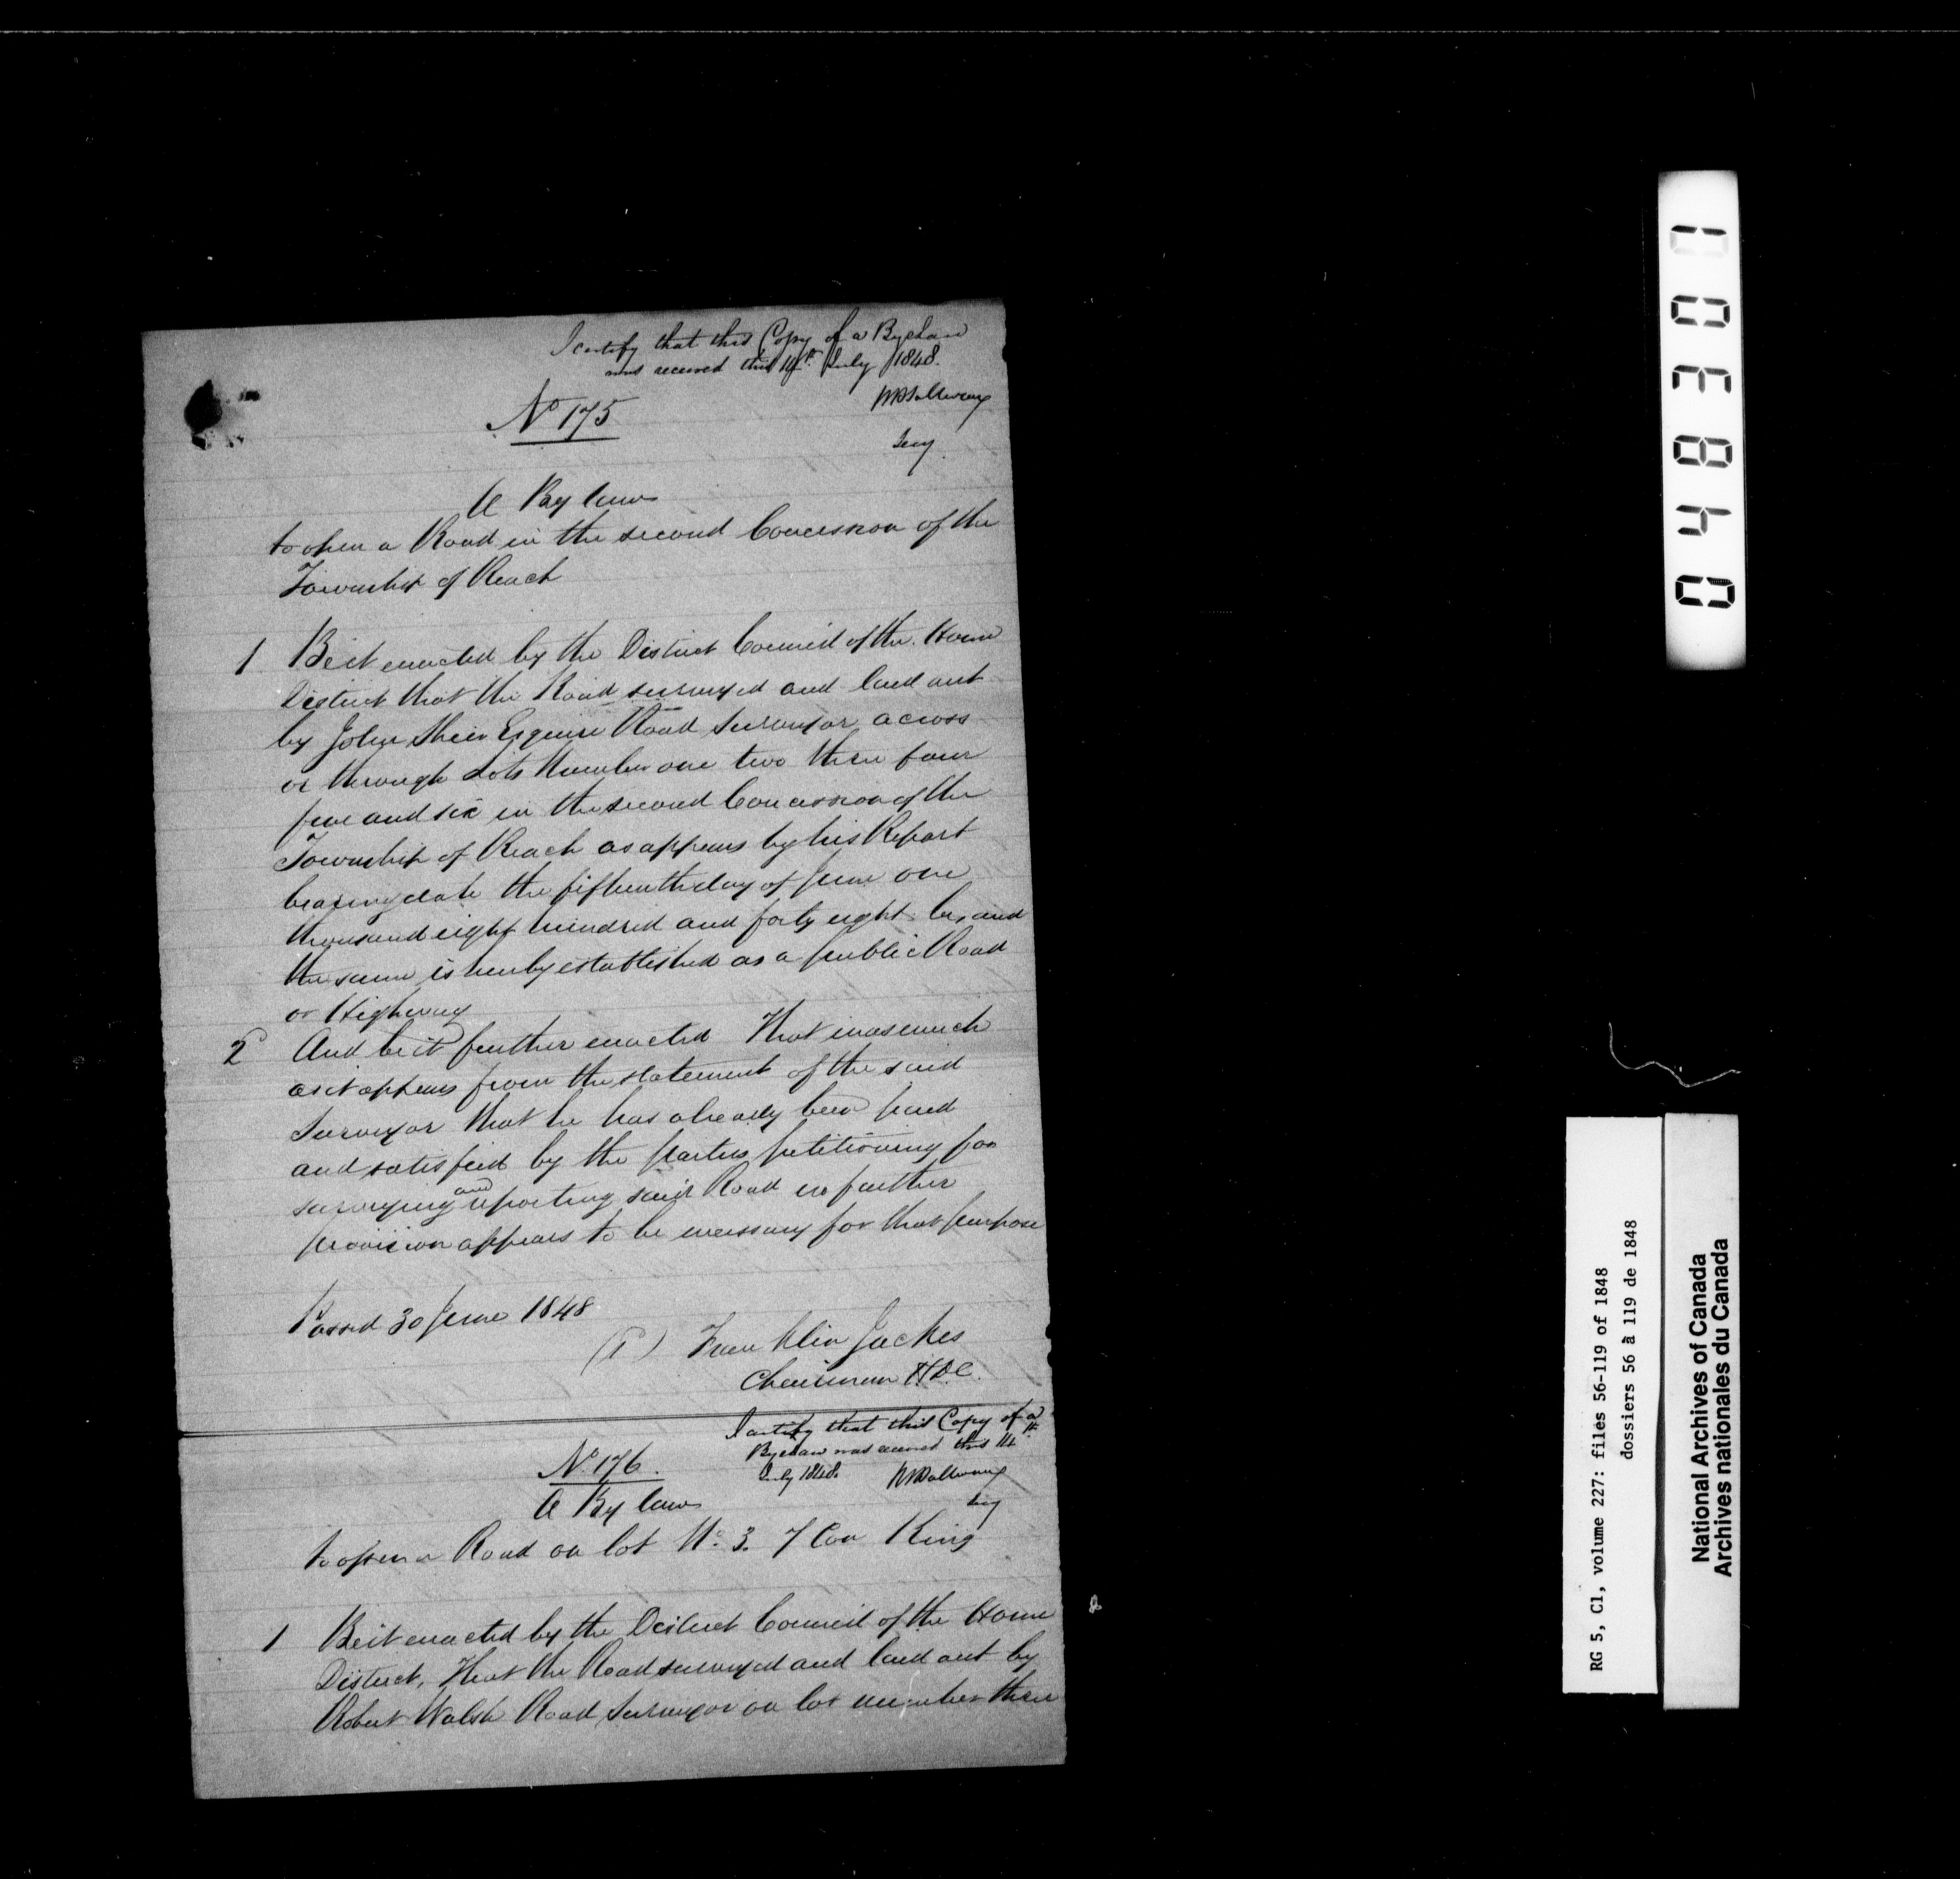 I certify that this Copy of a Bye Law
was received this 14th July 1848.
Secy.
No 175
A By law
to open a Road in the second Concession of the
Township of Reach
1 Be it enacted by the District Council of the Home
District that the Road surveyed and laid out
by John Shier Esquire Road Surveyor across
or through Lots Number one two three four
five and six in the second Concession of the
Township of Reach as appears by his Report
bearing date the fifteenth day of June one
thousand eight hundred and forty eight be, and
the same is hereby established as a public Road
or Highway
2 And be it further enacted That inasmuch
as it appears from the statement of the said
Surveyor that he has already been paid
and satisfied by the parties petitioning for
surveying and reporting said Road no further
provision appears to be necessary for that purpose
Passed 30 June 1848
Franklin Jackes
Chairman H.D.C.
I certify that this Copy of a
Bye Law was received this 14th
July 1848.
Secy
No. 176.
A By law
to open a Road on lot No. 3. 7 Con King
1 Be it enacted by the District Council of the Home
District, That the Road surveyed and laid out by
Robert Walsh Road Surveyor on lot number three
04830
RG 5, C1, volume 227: files 56-119 of 1848
dossiers 56 à 119 de 1848
National Archives of Canada
Archives nationales du Canada